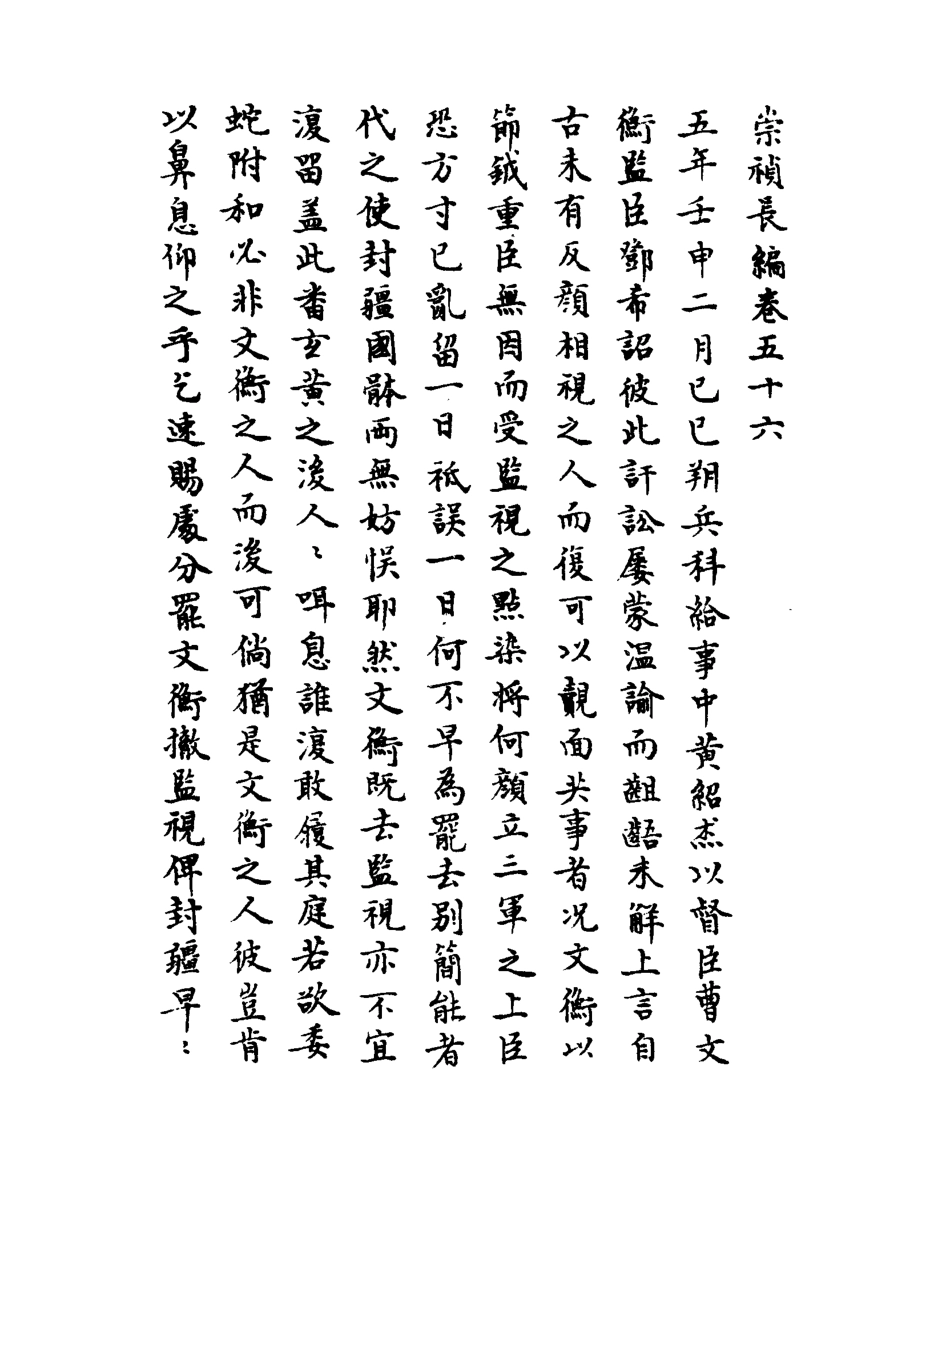 崇禎長編卷五十六
五年壬申二月己巳朔兵科給事中黄紹杰以督臣曹文
衡監臣鄧希詔彼此訐訟屡蒙温諭而齟齬未觧上言自
古未有反顔相視之人而復可以靦面共事者况文衡以
節鉞重臣無因而受監視之點染将何顔立三軍之上臣
恐方寸已亂留一日祗誤一日何不早為罷去别簡能者
代之使封疆國骵两無妨悮耶然文衡既去監視亦不宜
復留盖此畨玄黄之後人〻咡息誰復敢履其庭若欲委
蛇附和必非文衡之人而後可倘猶是文衡之人彼豈肯
以鼻息仰之乎乞速賜處分罷文衡撤監視俾封疆早〻